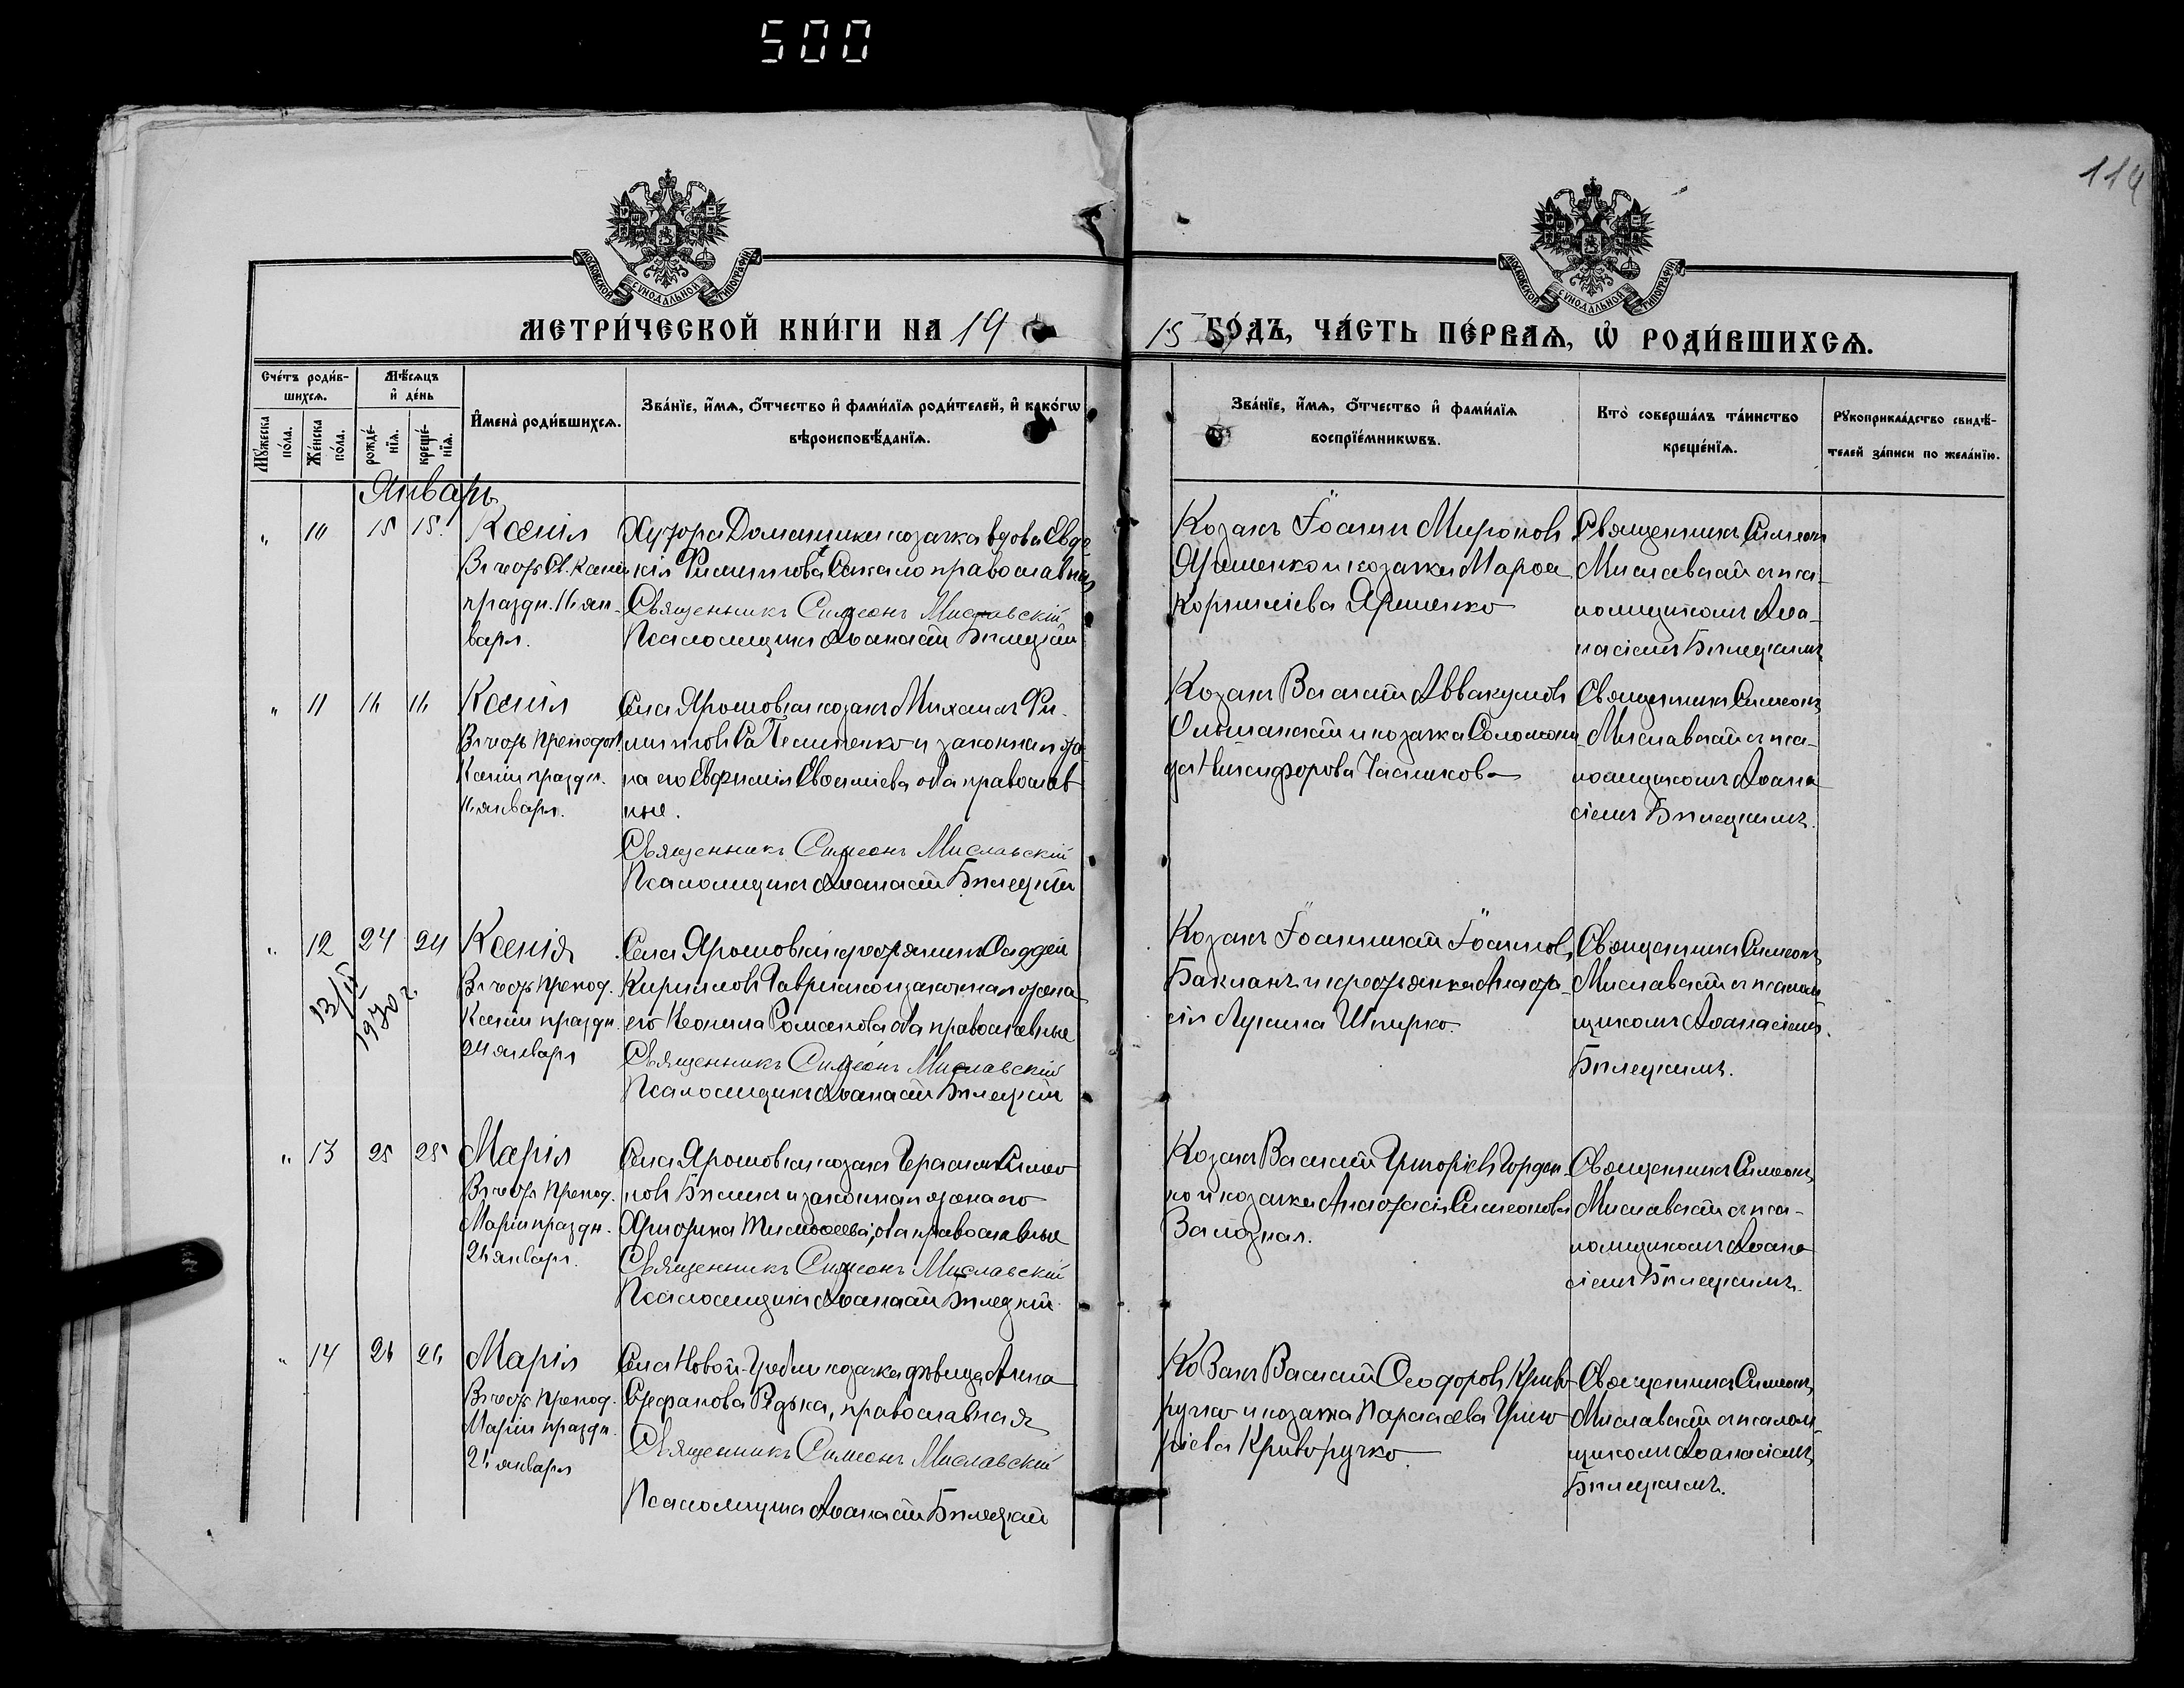 500
114
МОСКОВСКОЙ СѴНОДАЛЬНОЙ ТИПОГРАФІИ
МОСКОВСКОЙ СѴНОДАЛЬНОЙ ТИПОГРАФІИ
МЕТРИ́ЧЕСКОЙ КНИ́ГИ НА 19
15 ГО́ДЪ, ЧА́СТЬ ПЕ́РВАѦ, Ѡ РОДИ́ВШИХСѦ.
Сче́тъ роди́в-
шихсѧ.
Мꙋ́жеска по́ла.
Же́нска по́ла.
Мѣ́сѧцъ
и҆ де́нь
рожде́-
нїѧ.
креще́-
нїѧ.
И҆мена̀ роди́вшихсѧ.
Зва́нїе, и҆́мѧ, ѻ҆́тчество и҆ фами́лїѧ роди́телей, и҆ како́гѡ
вѣроисповѣ́данїѧ.
Зва́нїе, и҆́мѧ, ѻ҆́тчество и҆ фами́лїѧ
воспрїе́мникѡвъ.
Кто̀ соверша́лъ та́инство
креще́нїѧ.
Рꙋкоприкла́дство свидѣ́-
телей за́писи по жела́нїю.
Январь
" 10 15 15.
Ксенія
Въ честь Св. Ксеніи
праздн. 
варя.
Хутора козачка вдова Евдо-
кія православная
Священникъ Симеонъ Миславскій
Псаломщикъ Аѳанасій Бѣлецкій
Козакъ Іоаннъ Мироновъ
Ярешенко и козачка Марѳа
Корниліева Ярешенко
Священникъ Симеонъ
Миславскій съ пса-
ломщикомъ Аѳа-
насіемъ Бѣлецкимъ
" 11
Ксенія
Въ честь Препод.
Ксеніи праздн.
января.
Села Ярошовки козакъ Михаилъ Фи-
липповъ и законная же-
на его Евфимія Евѳиміева оба православ
ные.
Священникъ Симеонъ Миславскій
Псаломщикъ Аѳанасій Бѣлецкій
Козакъ Василій Аввакумовъ
Ольшанскій и козачка Соломони-
да Никифорова
Священникъ Симеонъ
Миславскій съ пса-
ломщикомъ Аѳана
сіемъ Бѣлецкимъ.
" 12 24 24
13/IV
1970 г.
Ксенія
Въ честь Препод.
Ксеніи праздн.
24 января
Села Ярошовки крестьянинъ Ѳаддей
Кирилловъ Гавриленко и законная жена
его Неонила Романова оба православные
Священникъ Симеонъ Миславскій
Псаломщикъ Аѳанасій Бѣлецкій
Козакъ Іоанникій Іоанновъ
Бакланъ и крестьянка Анаста-
сія Лукина Шпирко.
Священникъ Симеонъ
Миславскій съ псалом
щикомъ Аѳанасіемъ
Бѣлецкимъ.
" 13 25 25
Марія
Въ честь Препод.
Маріи праздн.
26 января.
Села Ярошовки козакъ Герасимъ Симео
новъ и законная жена его
Христина Тимоѳеева, оба православные
Священникъ Симеонъ Миславскій
Псаломщикъ Аѳанасій Бѣлецкій
Козакъ Василій Григорьевъ Горден-
ко и козачка Анастасія Симеонова
Зализная.
Священникъ Симеонъ
Миславскій съ пса-
ломщикомъ Аѳана
сіемъ Бѣлецкимъ.
" 14 26 26
Марія
Въ честь Препод.
Маріи праздн.
26 января
Села Новой-Гребли козачка дѣвица Анна
Стефанова Редька, православная
Священникъ Симеонъ Миславскій
Псаломщикъ Аѳанасій Бѣлецкій
Козакъ Василій Ѳеодоровъ Криво
ручко и козачка Параскева Григо
ріева Криворучко.
Священникъ Симеонъ
Миславскій съ псалом
щикомъ Аѳанасіемъ
Бѣлецкимъ.